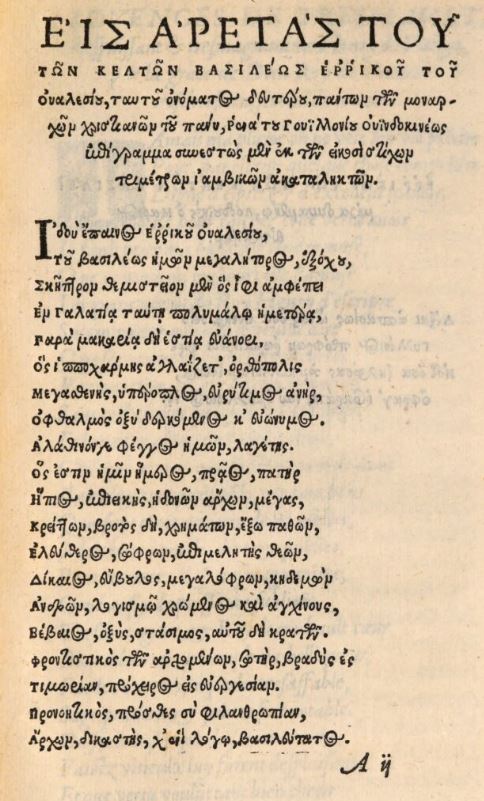 ΕἸΣ ἈΡΕΤᾺΣ ΤΟΥ͂
ΤΩ͂Ν ΚΕΛΤΩ͂Ν ΒΑΣΙΛΈΩΣ ἘῤῬΙΚΟΥ͂ ΤΟΥ͂
Οὐαλεσίου, ταύτου ὀνόματος δευτέρου, πάντων τῶν μοναρ-
χῶν χριστιανῶν τοῦ πάνυ, Ῥενάτου Γουϊλλονίου Οὐϊνδοκινέως
ἐπίγραμμα συνεστὼς μὲν ἐκ τῶν στίχων
τριμέτρων ἰαμβικῶν ἀκαταλήκτων.
Ἰδοὺ ἔπαινος ἐῤῥίκου οὐαλεσίου,
Τοῦ βασιλέως ἡμῶν μεγαλήτορος, ἐξόχου,
Σκῆπτρον θεμιστεῖον μὲν ὃς ἶφι ἀμφέπει
Ἐν Γαλατίᾳ ταύτῃ πολυμάλῳ ἡμετέρᾳ,
Γαρὰ μακαρία δὴ ἐστία
Ὃς ἱπποχάρμης ἀγλαΐζετ', ὀρθόπολις
Μεγασθενὴς, ὑπέροπλος, εὐρύτιμος ἀνὴρ,
Ὀφθαλμὸς ὀξὺ δερκόμενος κ' εὐώνυμος.
Ἀλαθινόν γε φέγγος ἡμῶν, λαγέτης.
Ὅς ἐστιν ἡμῖν ἥμερος, πρᾷος, πατὴρ
Ἤπιος, ἐπιεικὴς, ἡδονῶν ἄρχων, μέγας,
Κρείττων, βροτὸς δὴ, χρημάτων, ἔξω παθῶν,
Ἐλεύθερος, σώφρων, ἐπιμελητὴς θεῶν,
Δίκαιος, εὔβουλος, μεγαλόφρων, κηδεμὼν
Ἀνδρῶν, λογισμῷ χρώμενος καὶ ἀγχίνους,
Βέβαιος, ὀξὺς, στάσιμος, αὑτοῦ δὴ κρατῶν.
Φροντιστικὸς τῶν ἀρχομένων, σωτὴρ, βραδὺς ἐς
Τιμωρείαν, πρόχειρος εἰς εὐεργεσίαν.
Προνοητικὸς, πρόσθες σὺ φιλανθρωπίαν,
Ἄρχων, δικαστὴς, χ' ἑνὶ λόγῳ, βασιλεύτατος.
A ij